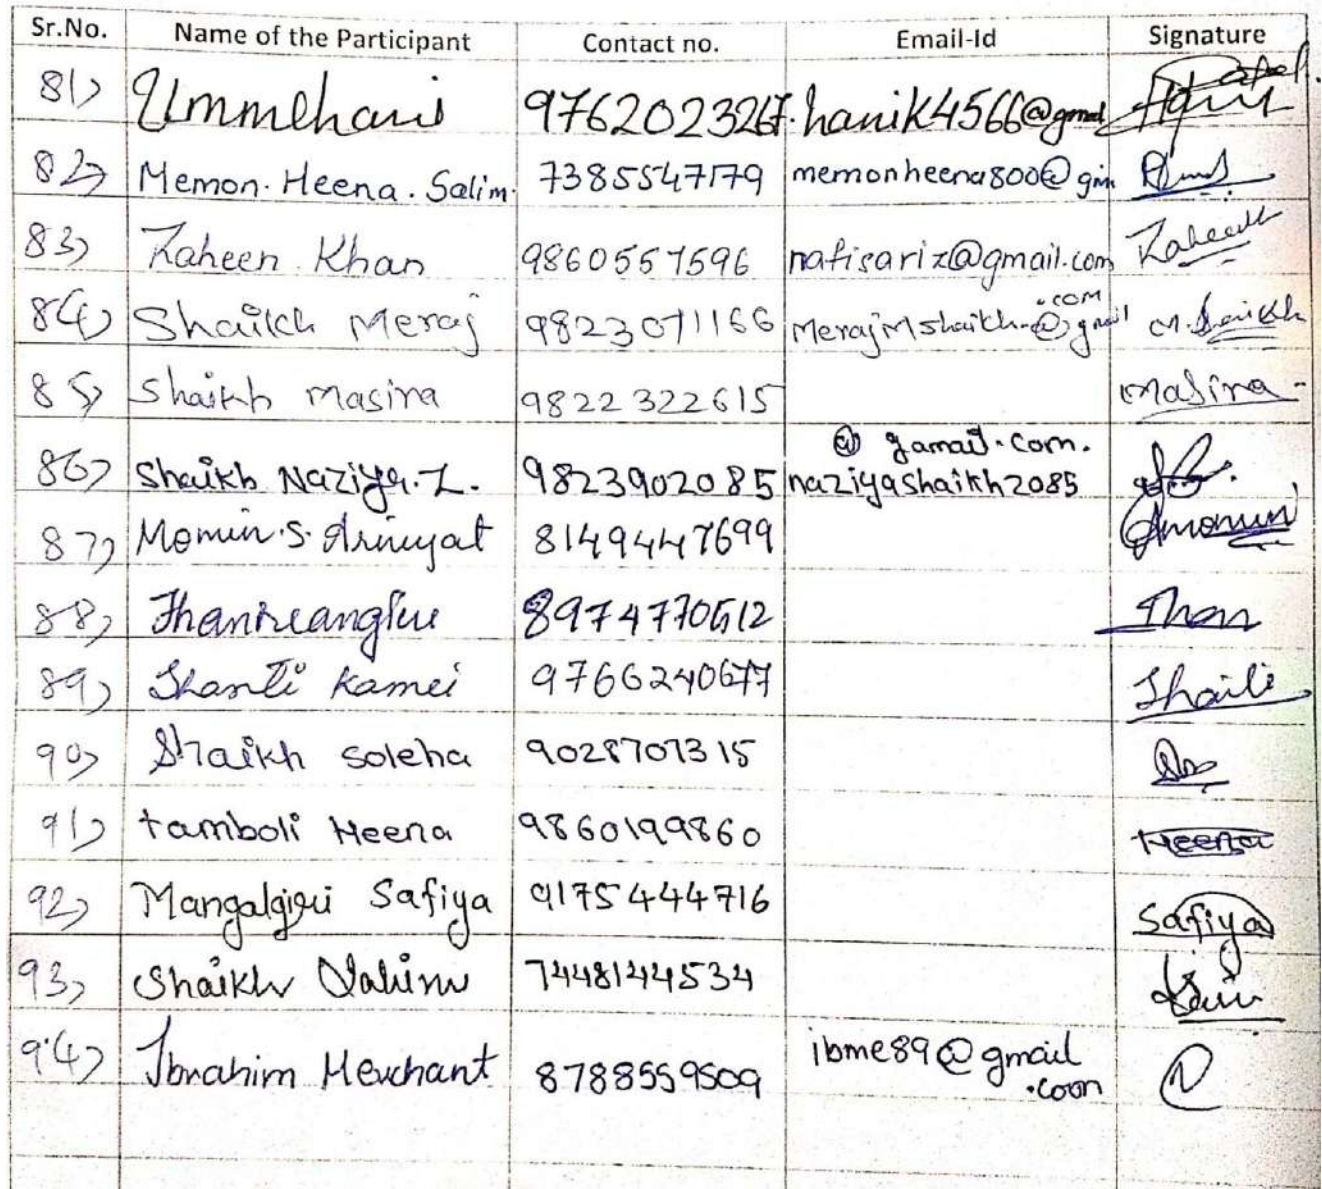 Sr.No. Name of the Participant Contact no. Email-Id Signature
81) Ummehani 9762023267. hanik4566@gmail
82) Memon. Heena. Salim. 7385547179 memonheena800@gm
83) Zaheen Khan 9860557596 nafisariz@gmail.com Zaheen
84) Shaikh Meraj 9823071166 MerajMshaikh@gmail .com M.Shaikh
85) Shaikh Masira 9822322615 Masira
86) Shaikh Naziya. Z. 9823902085 naziyashaikh2085 @ gamail.com.
87) Momin.S. 8149447699 Amomin
88) 8974770512 Than
89) Shanti Kamei 9766240677
90) Shaikh Soleha 9028707315
91) tamboli Heena 9860199860 Heena
92) Mangalgiri Safiya 9175444716 Safiya
93) Shaikh 7448144534
94) Ibrahim Merchant 8788559509 ibme89@gmail
.com